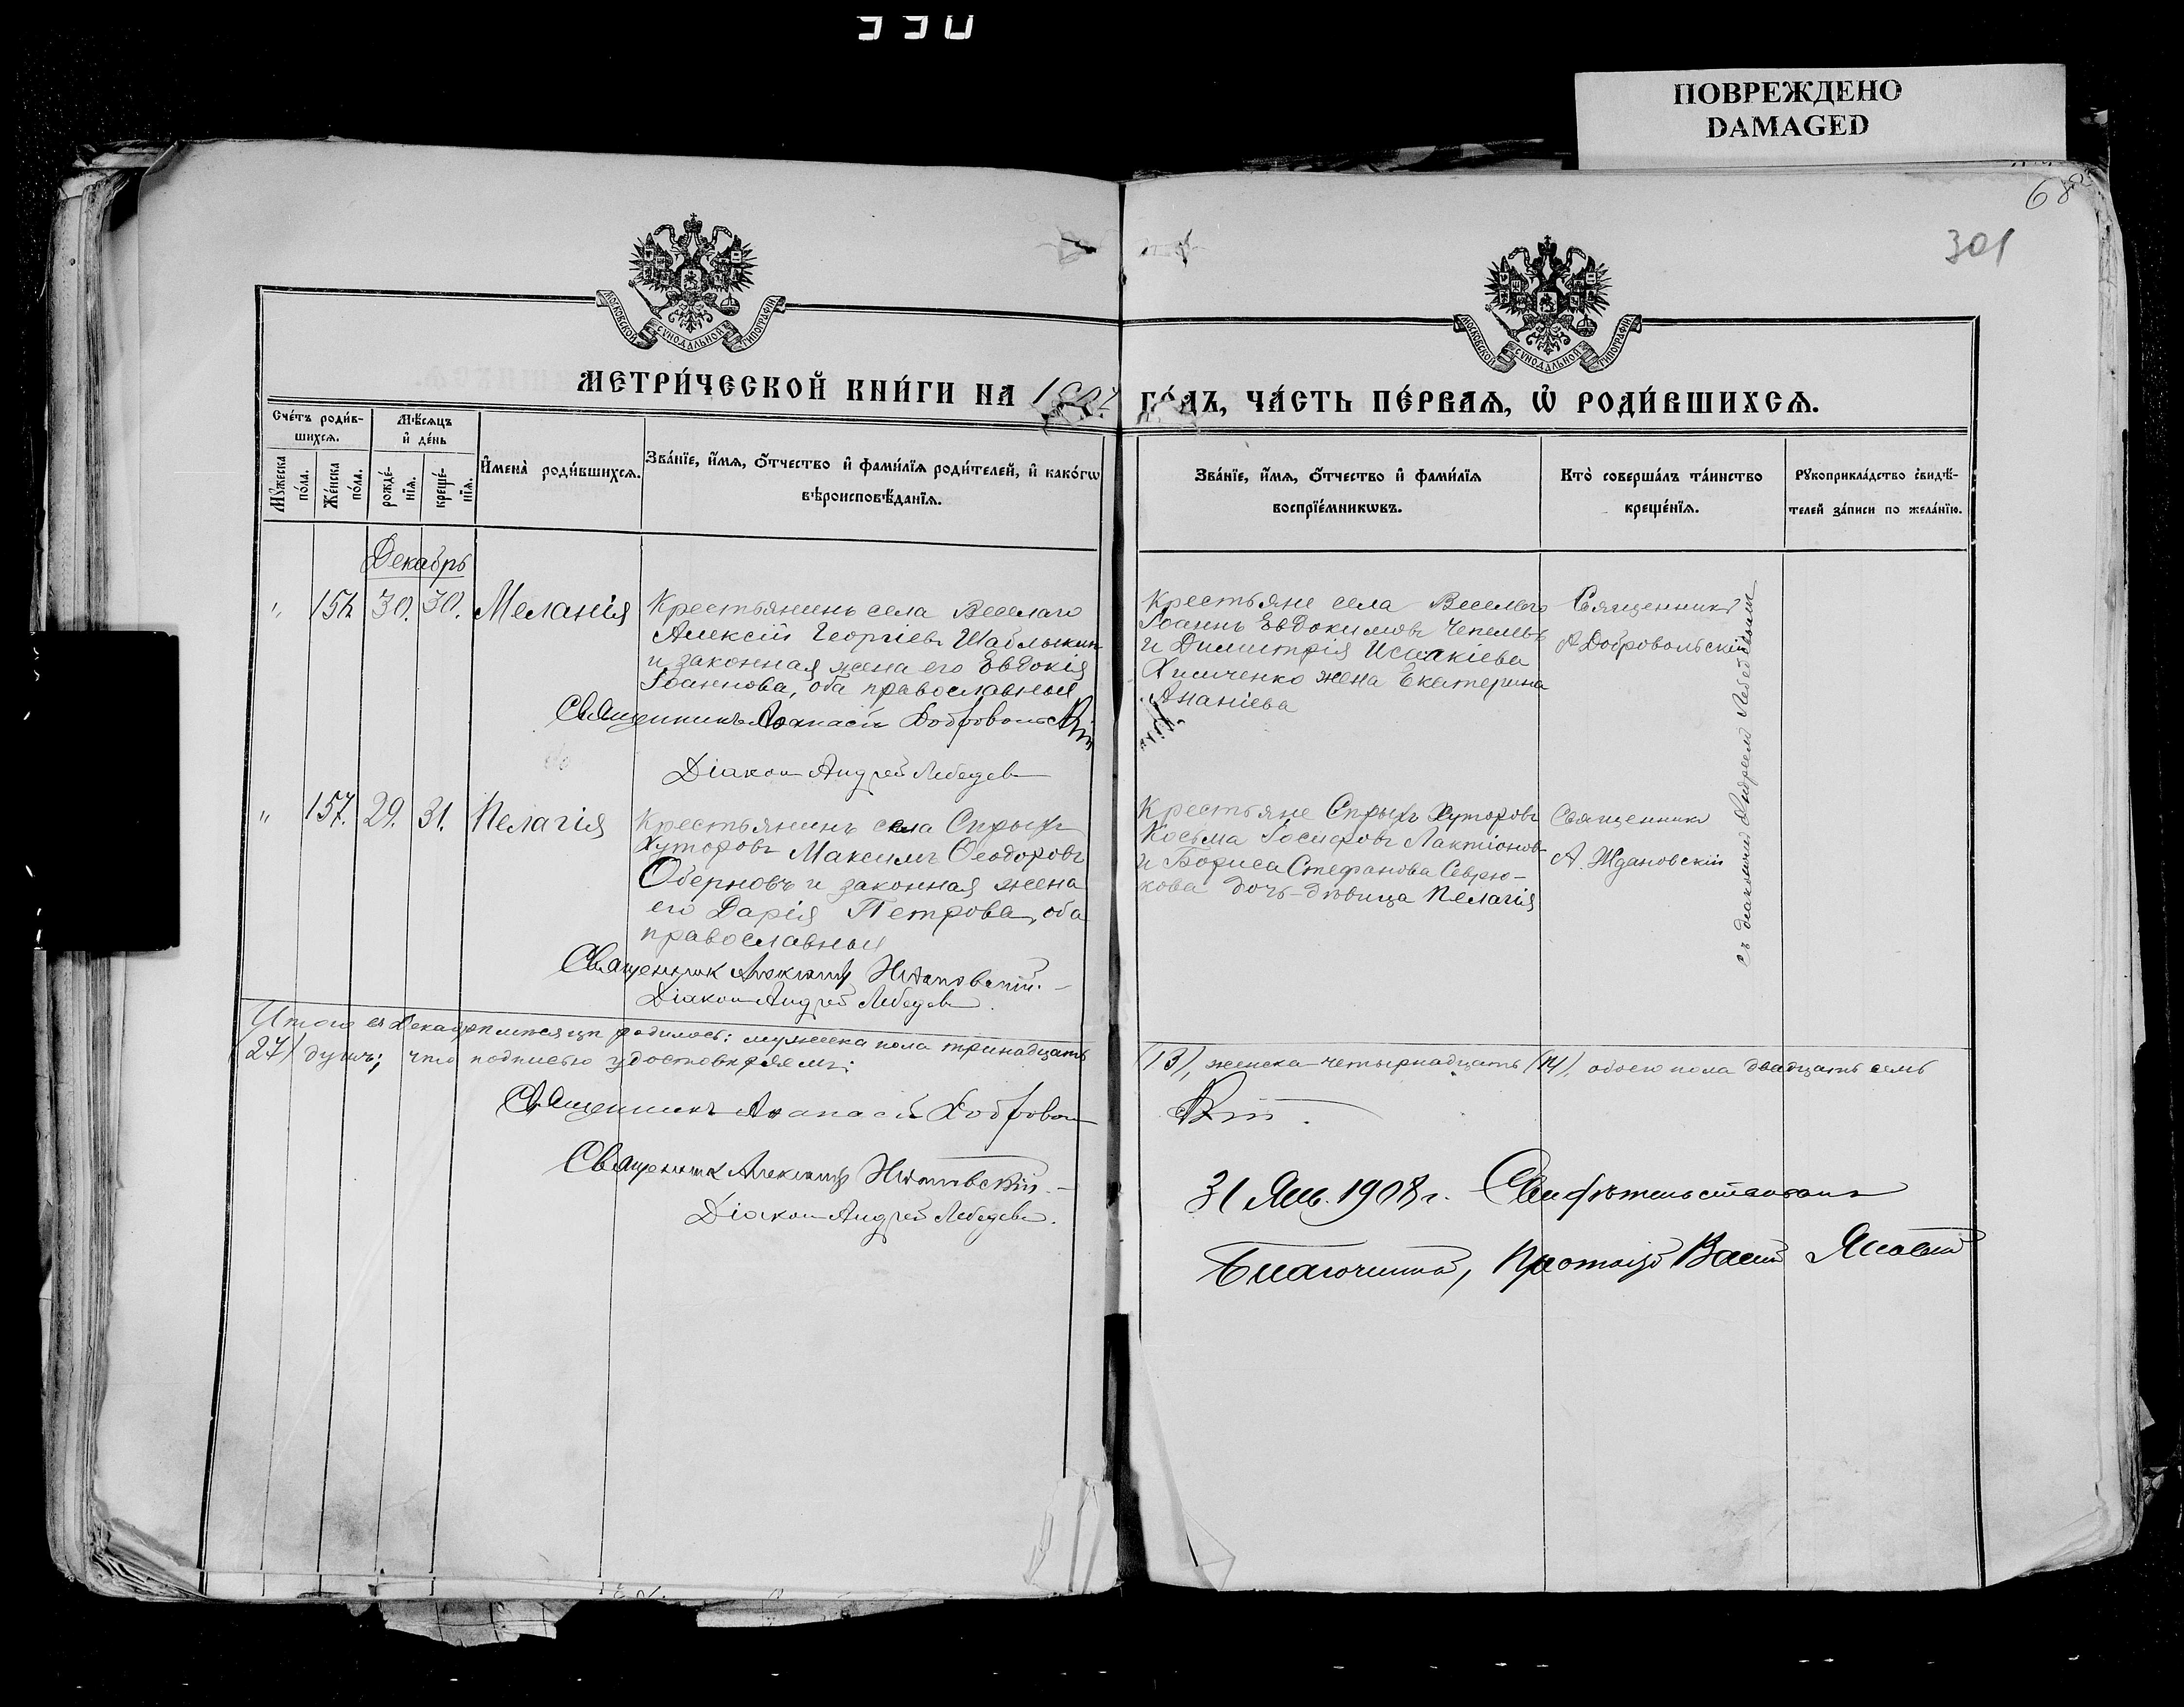 330
ПОВРЕЖДЕНО
DAMAGED
68
301
МОСКОВСКОЙ СѴНОДАЛЬНОЙ ТИПОГРАФІИ
МОСКОВСКОЙ СѴНОДАЛЬНОЙ ТИПОГРАФІИ
МЕТРИ́ЧЕСКОЙ КНИ́ГИ НА 1907 ГО́ДЪ, ЧА́СТЬ ПЕ́РВАЯ, Ѿ РОДИ́ВШИХСЯ.
Сче́тъ роди́в-
шихся.
Мѣ́сяцъ
и҆ де́нь
Мꙋ́жеска
по́ла.
Же́нска
по́ла.
рожде́-
нїя.
креще́-
нїя.
И҆мена̀ роди́вшихся.
Зва́нїе, и҆́мя, ѻ҆́тчество и҆ фами́лїя роди́телей, и҆ како́гѡ
вѣроисповѣ́данїя.
Зва́нїе, и҆́мя, ѻ҆́тчество и҆ фами́лїя
воспрїе́мникѡвъ.
Кто̀ соверша́лъ та́инство
креще́нїя.
Рꙋкоприкла́дство свидѣ́-
телей за́писи по жела́нїю.
Декабрь
" 156 30. 30. Меланія
Крестьянинъ села Веселаго
Алексій Георгіевъ Шаблыкин
и законная жена его Евдокія
Іоаннова, оба православныя
Священникъ Аѳанасій Добровольскій
Діаконъ Андрей Лебедев
Крестьяне села Веселаго
Іоаннъ Евдокимовъ Чепелевъ
и Димитрія Исаакіева
Хижченко жена Екатерина
Ананіева
Священникъ
А. Добровольскій
съ діакономъ Андреемъ Лебедевымъ
" 157. 29. 31. Пелагія
Крестьянинъ села Спрыхъ
Хуторовъ Максимъ Ѳеодоровъ
Оберновъ и законная жена
его Дарія Петрова, оба
православныя
Священник Александр Ждановскій.
Діаконъ Андрей Лебедев.
Крестьяне Спрыхъ Хуторовъ
Косьма Іосифовъ Лактіонов
и Бориса Стефанова Севрю-
кова дочь-дѣвица Пелагія
Священникъ
А. Ждановскій
Итого въ Декабрѣ мѣсяцѣ родилось: мужеска пола тринадцать (13), женска-четырнадцать (14), обоего пола двадцать семь
(27) душъ; что подписью удостовѣряемъ:
Священникъ Аѳанасій Добровольскій.
Священник Александр Ждановскій.
Діаконъ Андрей Лебедев.
31 Янв. 1908 г. Свидѣтельствовалъ
Благочинный, Протоіер Васи